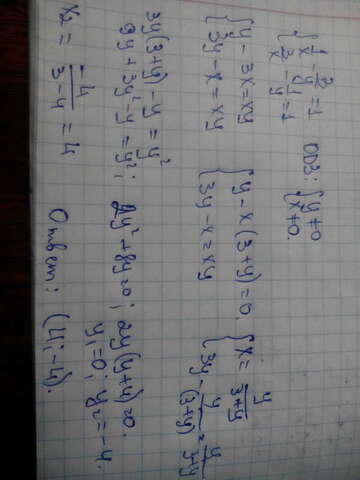 { 1/x - 3/y = 1    ОДЗ: { y ≠ 0
{ 3/x - 1/y = 1             { x ≠ 0.
{ y - 3x = xy    { y - x(3+y) = 0.    { x = y/(3+y)
{ 3y - x = xy    { 3y - x = xy    { 3y - y/(3+y) =
3y(3+y) - y = y²
9y + 3y² - y = y²; 2y² + 8y = 0; 2y(y+4) = 0.
y₁ = 0; y₂ = -4.
x₂ = -4/(3-4) = 4    Ответ: (4; -4).